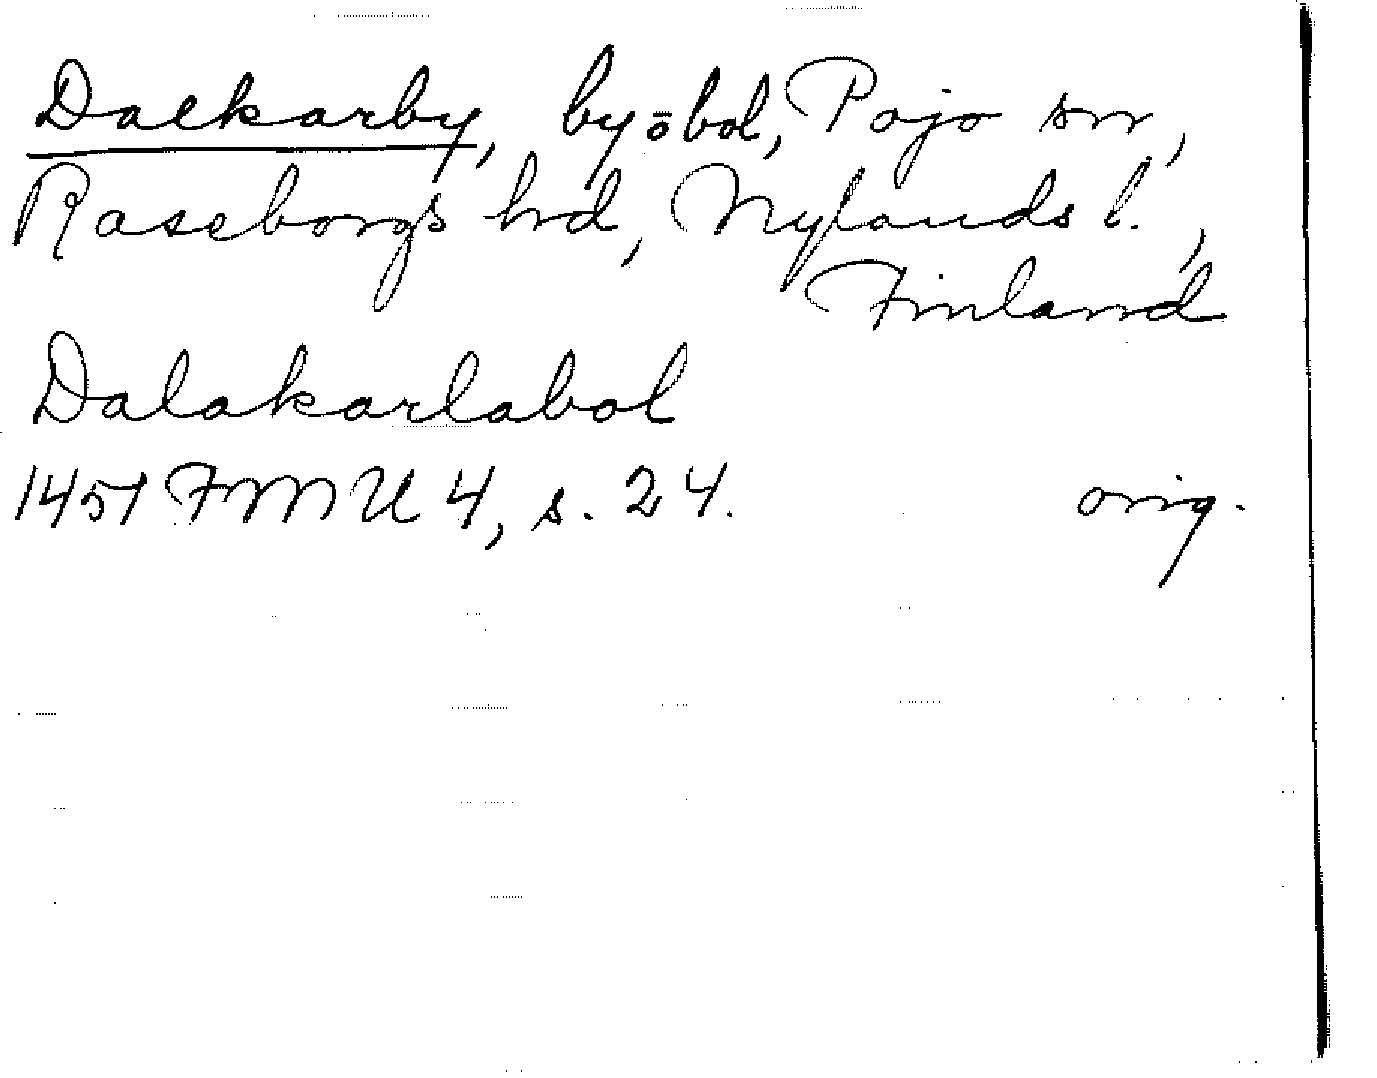 Dalkarby, by o bol, Pojo sn,
Raseborgs hrd, Nylands l.,
Finland
Dalakarlabol
1451 FMU 4, s. 24. orig.